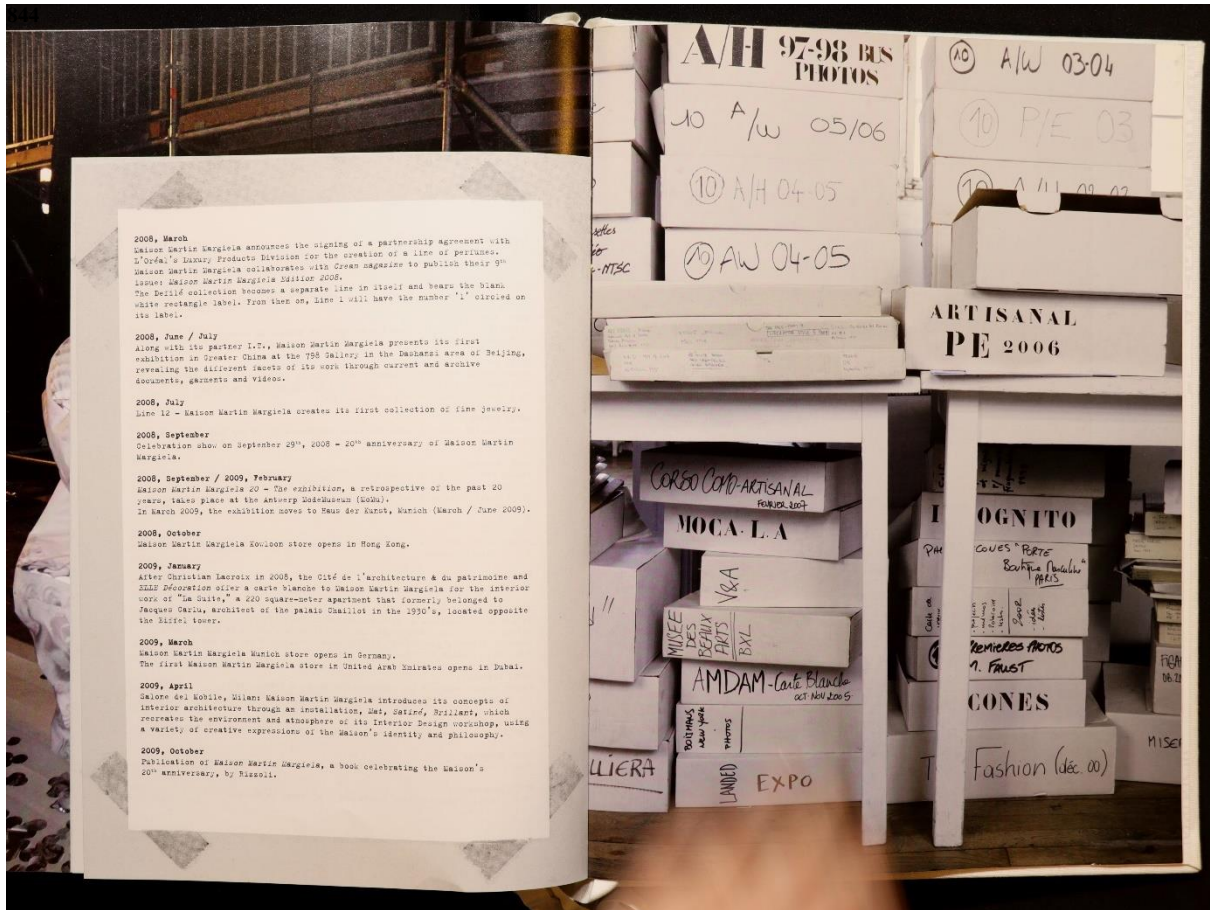 2008, March
Maison Martin Margiela announces the signing of a partnership agreement with
L'Oréal's Luxury Products Division for the creation of a line of perfumes.
Maison Martin Margiela collaborates with Cream magazine to publish their 9th
issue: Maison Martin Margiela Edition 2008.
The Défilé collection becomes a separate line in itself and bears the blank
white rectangle label. From then on, Line 1 will have the number '1' circled on
its label.
2008, June / July
Along with its partner I.T., Maison Martin Margiela presents its first
exhibition in Greater China at the 798 Gallery in the Dashanzi area of Beijing,
revealing the different facets of its work through current and archive
documents, garments and videos.
2008, July
Line 12 – Maison Martin Margiela creates its first collection of fine jewelry.
2008, September
Celebration show on September 29th, 2008 – 20th anniversary of Maison Martin
Margiela.
2008, September / 2009, February
Maison Martin Margiela 20 – The exhibition, a retrospective of the past 20
years, takes place at the Antwerp ModeMuseum (MoMu).
In March 2009, the exhibition moves to Haus der Kunst, Munich (March / June 2009).
2008, October
Maison Martin Margiela Kowloon store opens in Hong Kong.
2009, January
After Christian Lacroix in 2008, the Cité de l'architecture & du patrimoine and
ELLE Décoration offer a carte blanche to Maison Martin Margiela for the interior
work of "La Suite," a 220 square-meter apartment that formerly belonged to
Jacques Carlu, architect of the palais Chaillot in the 1930's, located opposite
the Eiffel tower.
2009, March
Maison Martin Margiela Munich store opens in Germany.
The first Maison Martin Margiela store in United Arab Emirates opens in Dubai.
2009, April
Salone del Mobile, Milan: Maison Martin Margiela introduces its concepts of
interior architecture through an installation, Mat, Satiné, Brillant, which
recreates the environment and atmosphere of its Interior Design workshop, using
a variety of creative expressions of the Maison's identity and philosophy.
2009, October
Publication of Maison Martin Margiela, a book celebrating the Maison's
20th anniversary, by Rizzoli.
A/H 97-98 BUS
PHOTOS
10 A/W 05/06
10 A/H 04-05
10 AW 04-05
10 A/W 03-04
10 P/E 03
10
-NTSC
ARTISANAL
PE 2006
CORSO COMO-ARTISANAL
FEVRIER 2007
MOCA-L.A
V&A
MUSEE
DES
BEAUX
ARTS
BXL
AMDAM-Carte Blanche
OCT-NOV 2005
BOIJMANS
NEW YORK
PHOTOS
LLIERA
LANDED
EXPO
I OGNITO
CONES "PORTE
Boutique
PARIS
PREMIERES PHOTOS
M. FAUST
CONES
Fashion (déc. 00)
MISE